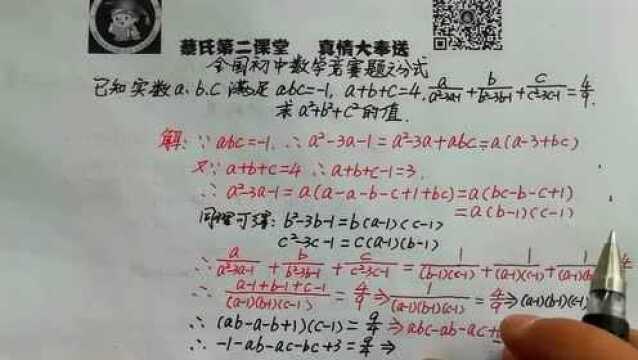 蔡氏第二课堂 真情大奉送
全国初中数学竞赛题之分式
已知实数a、b、c满足abc=-1, a+b+c=4, a/(a²-3a-1)+b/(b²-3b-1)+c/(c²-3c-1)=4/9,
求a²+b²+c²的值.
解:∵abc=-1, ∴a²-3a-1=a²-3a+abc=a(a-3+bc)
又∵a+b+c=4 ∴a+b+c-1=3,
∴a²-3a-1=a(a-a-b-c+1+bc)=a(bc-b-c+1)
=a(b-1)(c-1)
同理可得:b²-3b-1=b(a-1)(c-1)
c²-3c-1=c(a-1)(b-1)
∴a/(a²-3a-1)+b/(b²-3b-1)+c/(c²-3c-1)=1/((b-1)(c-1))+1/((a-1)(c-1))+1/((a-1)(b
∴(a-1+b-1+c-1)/((a-1)(b-1)(c-1))=4/9⇒1/((a-1)(b-1)(c-1))=4/9⇒(a-1)(b-1)(c-1)
∴(ab-a-b+1)(c-1)=9/4⇒abc-ab-ac+
∴-1-ab-ac-bc+3=9/4⇒